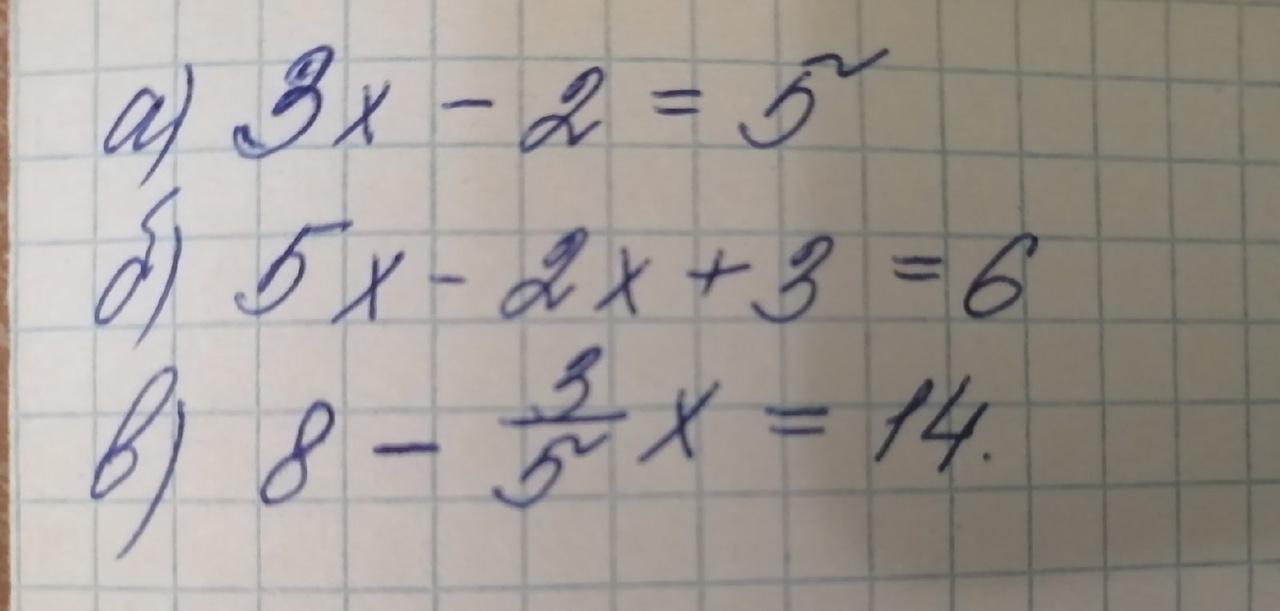 а) 3x - 2 = 5
б) 5x - 2x + 3 = 6
в) 8 - 3/5 x = 14.